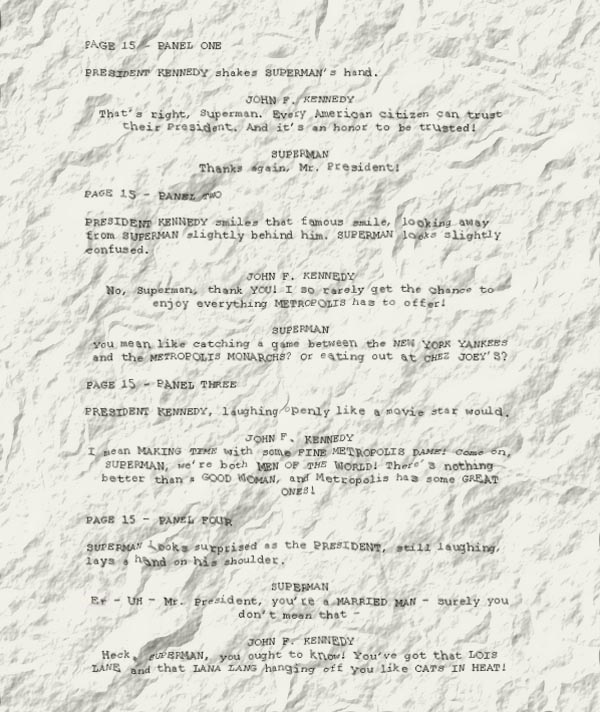 PAGE 15 - PANEL ONE
PRESIDENT KENNEDY shakes SUPERMAN's hand.
JOHN F. KENNEDY
That's right, Superman. Every American citizen can trust
their President. And it's an honor to be trusted!
SUPERMAN
Thanks again, Mr. President!
PAGE 15 - PANEL TWO
PRESIDENT KENNEDY smiles that famous smile, looking away
from SUPERMAN slightly behind him. SUPERMAN looks slightly
confused.
JOHN F. KENNEDY
No, Superman, thank YOU! I so rarely get the chance to
enjoy everything METROPOLIS has to offer!
SUPERMAN
You mean like catching a game between the NEW YORK YANKEES
and the METROPOLIS MONARCHS? Or eating out at CHEZ JOEY'S?
PAGE 15 - PANEL THREE
PRESIDENT KENNEDY, laughing openly like a movie star would.
JOHN F. KENNEDY
I mean MAKING TIME with some FINE METROPOLIS DAME! Come on,
SUPERMAN, we're both MEN OF THE WORLD! There's nothing
better than a GOOD WOMAN, and Metropolis has some GREAT
ONES!
PAGE 15 - PANEL FOUR
SUPERMAN looks surprised as the PRESIDENT, still laughing,
lays a hand on his shoulder.
SUPERMAN
Er - UH - Mr. President, you're a MARRIED MAN - surely you
don't mean that -
JOHN F. KENNEDY
Heck, SUPERMAN, you ought to know! You've got that LOIS
LANE and that LANA LANG hanging off you like CATS IN HEAT!